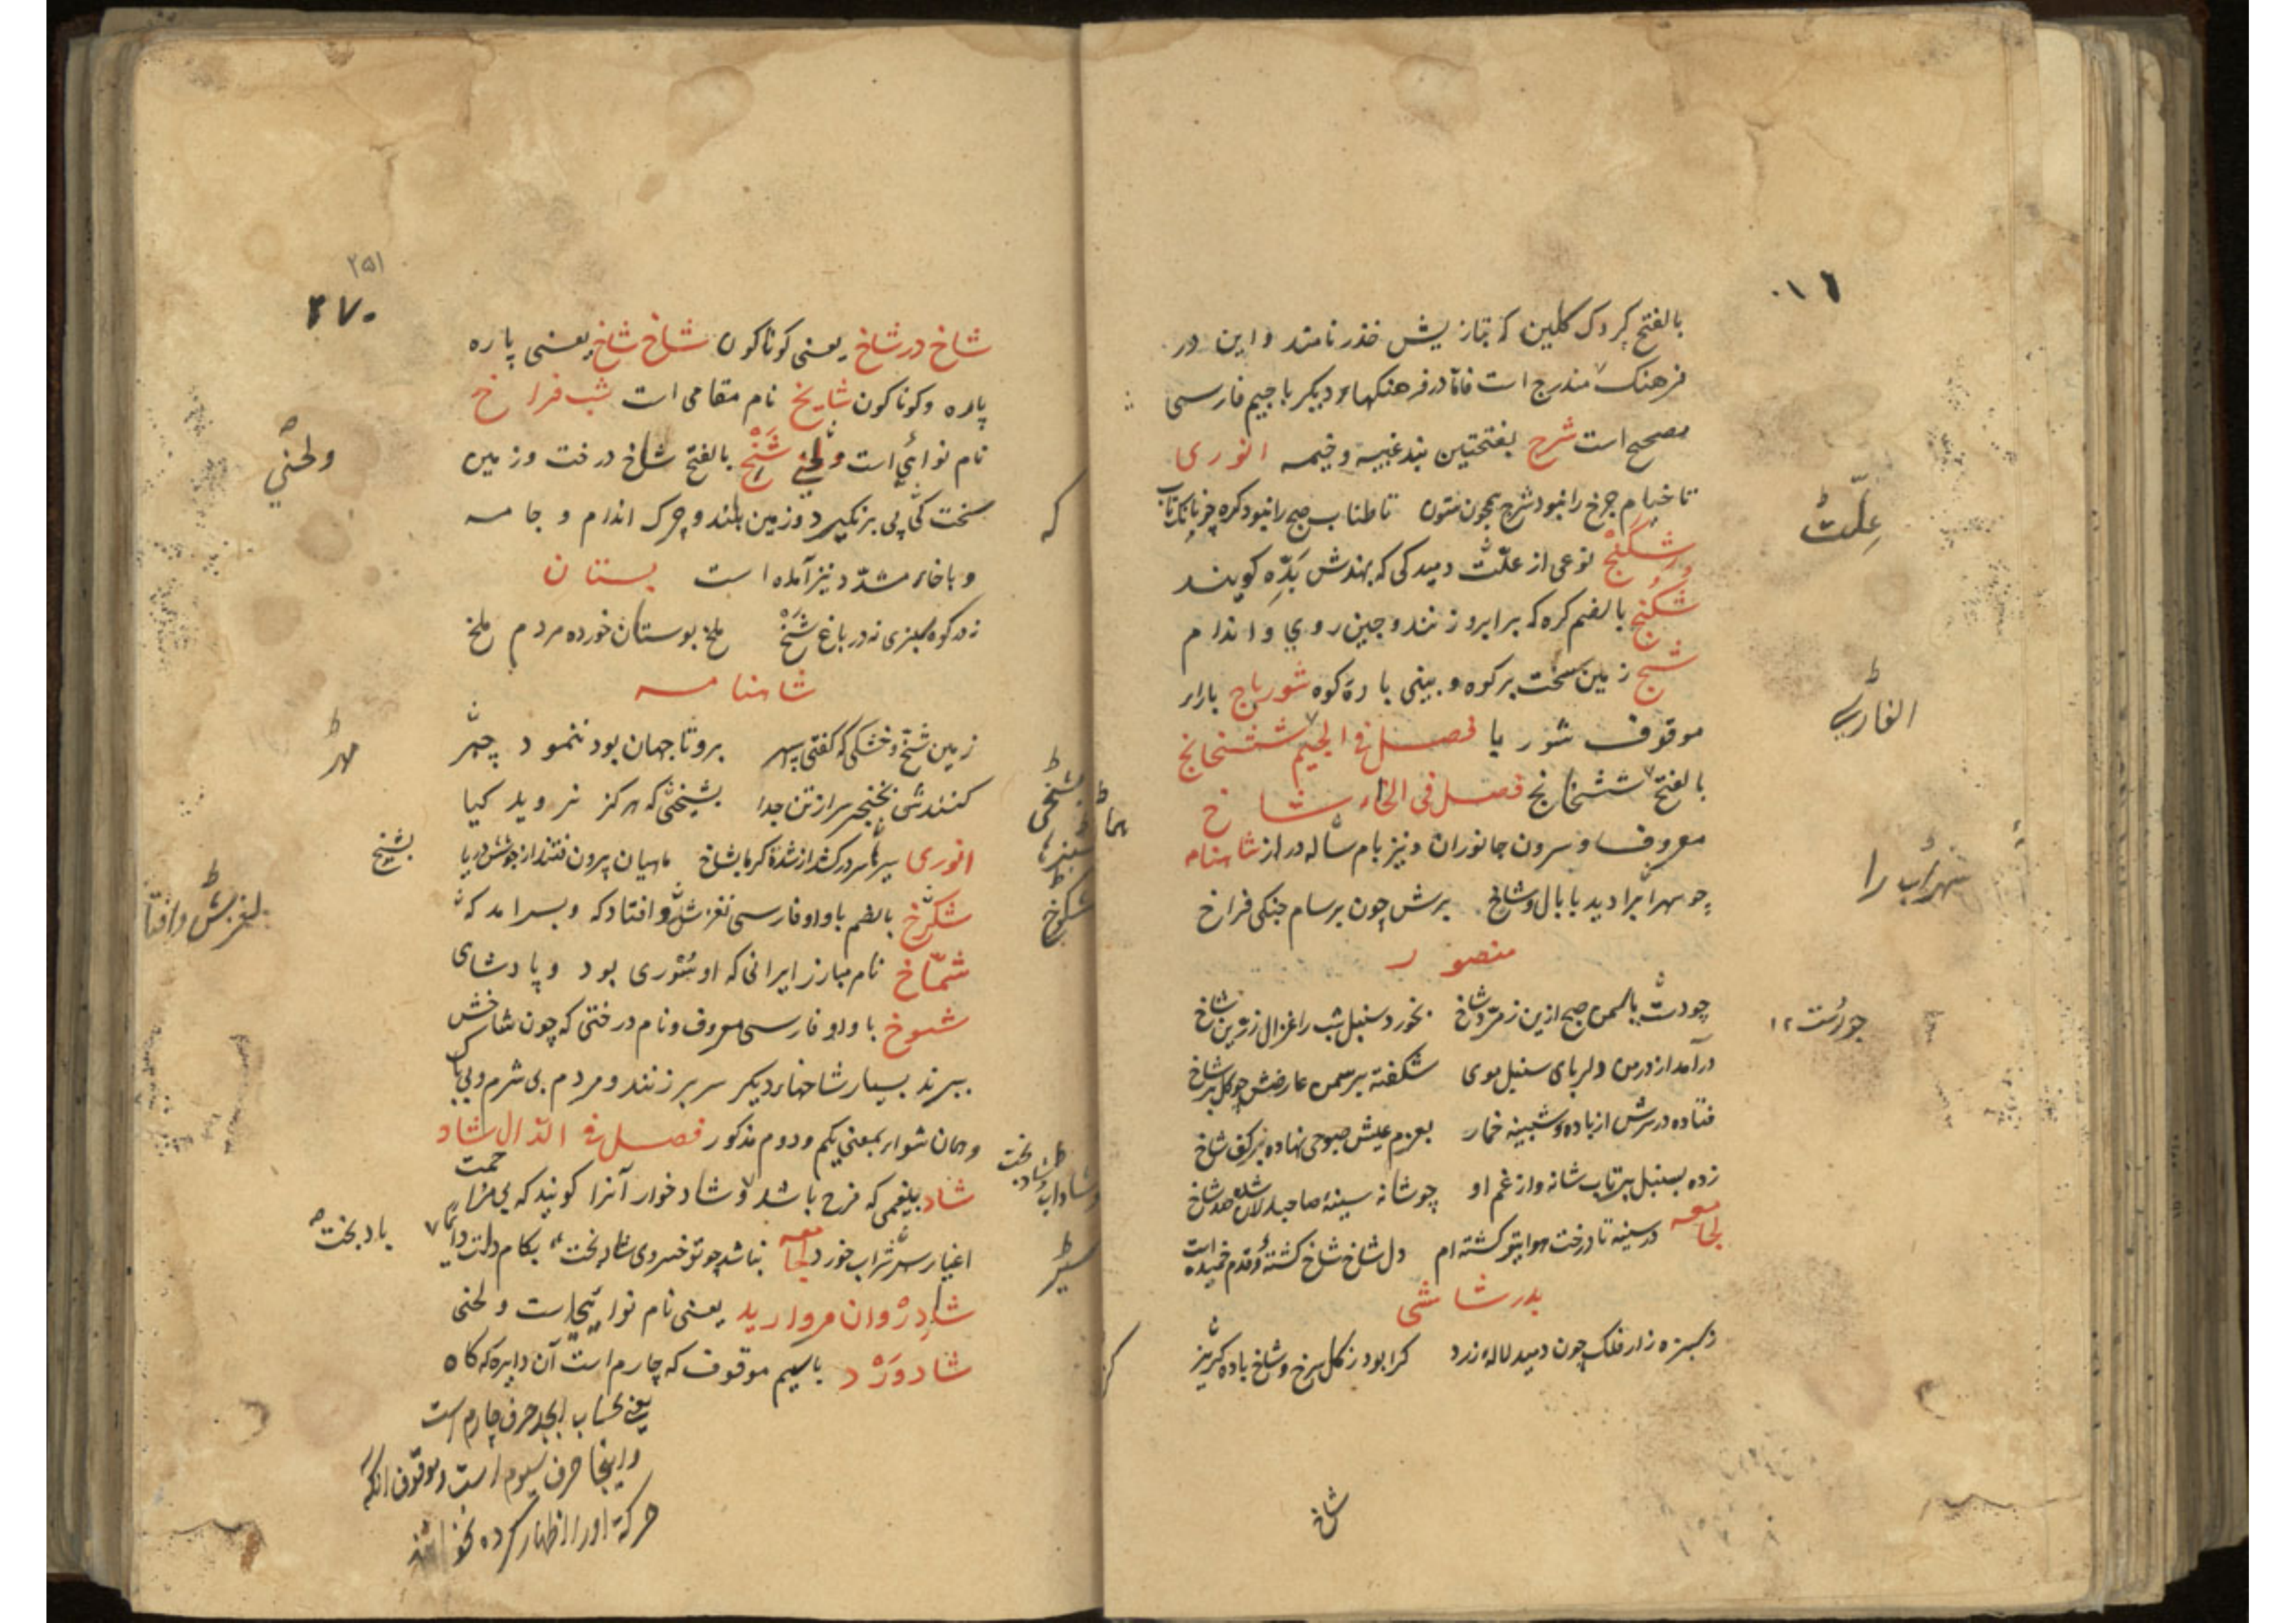 بالفتح کردک کلین که بتازیش خذر نامند و این در
فرهنک مندرج است فاما در فرهنکهاء دیکر با جیم فارسی
مصحح است شرج بفتحتین بند غیبه و خیمه انوری
تا خیام چرخ را نبود شرج همچون ستون تا طناب صبح را نبود کره
شکنج نوعی از علّت دمیدکی که بهندش بَدّه کویند
شکنج بالضم کره که بر ابرو زنند و چین روی و اندام
شج زمین سخت بر کوه و بینی پارهٔ کوه شورباج باراء
موقوف شوربا فصل فی الجیم ششخانج
بالفتح ششخانج فصل فی الخاء شاخ
معروف و سرون جانوران و نیز بام ساله دراز شاهنامه
چو سهراب را دید با بال و شاخ برش چون بر سام جنکی فراخ
منصور
چو دست یاسمن صبح ازین زمرّد شاخ بخورد سنبل شب را غزال زرّین شاخ
درآمد از در من دلربای سنبل موی شکفته بر سمن عارضش چو کل بر شاخ
فتاده در سرش از بادهٔ شبینه خمار بعزم عیش صبوحی نهاده بر کف شاخ
زده بسنبل پرتاب شانه و از غم او چو شانه سینهٔ صاحبدلان شده صد شاخ
لجامعه در سینه تا درخت هوایتو کشته‌ام دل شاخ شاخ کشته و قدم خمیده است
بدر شاشی
ز سبزه‌زار فلک چون دمید لالهٔ زرد کرا بود ز کل سرخ و شاخ باده کریز
شاخ
علّت
الفارسی
سهراب را
چو رُست ۱۲
۲۵۱
۲۷۰
شاخ در شاخ یعنی کوناکون شاخ شاخ یعنی پاره
پاره و کوناکون شایخ نام مقامی است شب فراخ
نام نوائی است و لحنی شَخ بالفتح شاخ درخت و زمین
سخت که پی برنکیرد و زمین بلند و چرک اندام و جامه
و با خاء مشدّد نیز آمده است بستان
نه در کوه سبزی نه در باغ شَخ ملخ بوستان خورده مردم ملخ
شاهنامه
زمین شخّ و خشکی که کفتی سپهر برو تا جهان بود ننمود چهر
کنندش بخنجر سر از تن جدا بشخّی که هرکز نروید کیا
انوری
شکوخ بالضم با واو فارسی لغزش و افتادکه و بسرآمدکه
شمّاخ نام مبارز ایرانی که او سُوری بود و پادشای
شوخ با واو فارسی معروف و نام درختی که چون شاخش
ببرند بسیار شاخهاء دیکر سر بر زنند و مردم بی شرم و بی باک
و همان شوار بمعنی یکم و دوم مذکور فصل فی الدّال شاد
شاد بیغمی که فرح باشد و شادخوار آنرا کویند که بی مزاحمت
اغیار شراب خورد لجامعه نباشد چو تو خسروی شادبخت بکام دلت
شادِرْوان مروارید یعنی نام نوائیست و لحنی
شادوَرْد باسیم موقوف که چارم است آن دایره که کاه
یعنی بحساب ابجد حرف چارم است
و اینجا حرف سیوم است و موقوف آنکه
حرکة او را اظهار کرده نخوانند
ولحنی
که
مهر
بشخ
شکوخ
لغزش و افتا
بادبخت